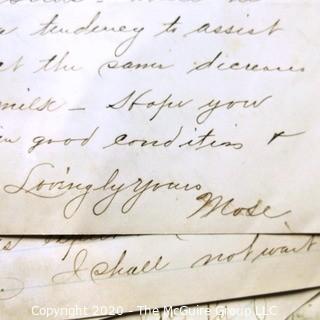 a tendency to assist
at the same decreases
milk - Hope you
in good condition &
Lovingly yours
Mose
I shall not want
Copyright 2020 - The McGuire Group LLC